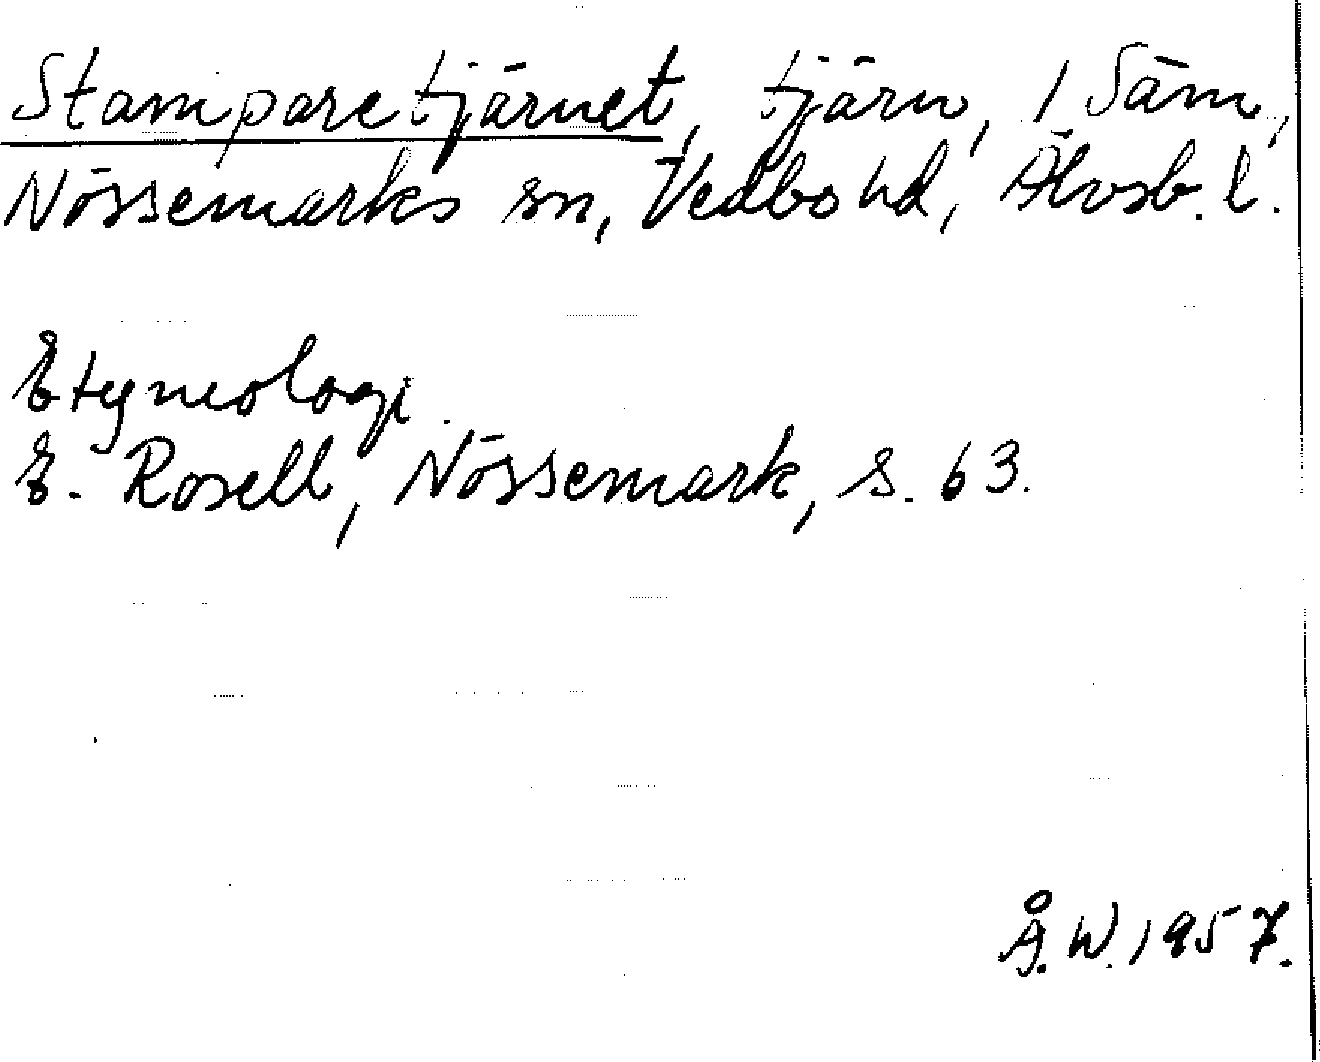 Stamparetjärnet, tjärn, 1 Säm,
Nössemarks sn, Vedbo hd, Älvsb. l.
Etymologi.
E. Rosell, Nössemark, s. 63.
Å. W. 1957.